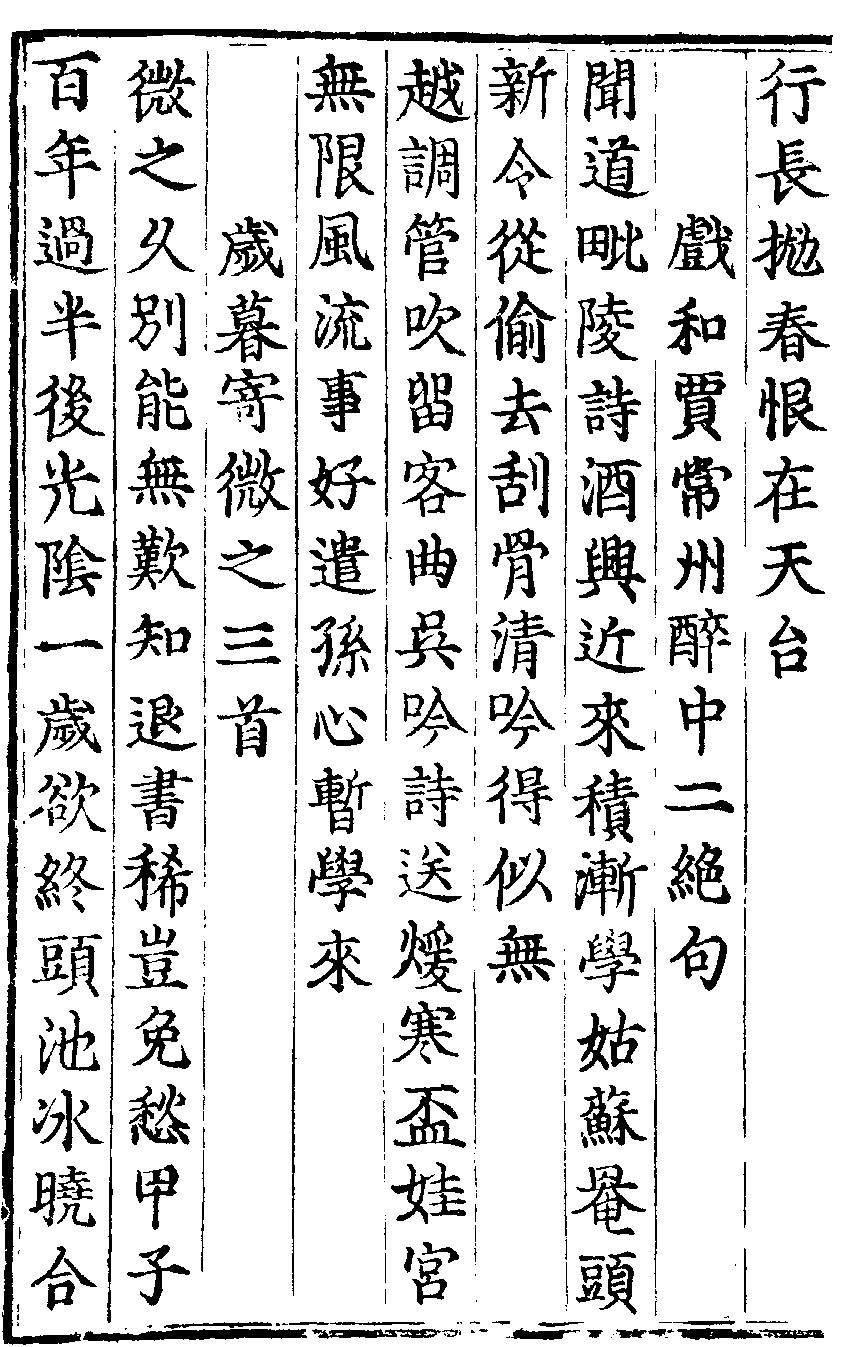 行長拋春恨在天台
戲和賈常州醉中二絕句
聞道毗陵詩酒興近來積漸學姑蘇罨頭
新令從偷去刮骨清吟得似無
越調管吹留客曲吳吟詩送煖寒盃娃宮
無限風流事好遣孫心暫學來
歲暮寄微之三首
微之久別能無歎知退書稀豈免愁甲子
百年過半後光陰一歲欲終頭池冰曉合